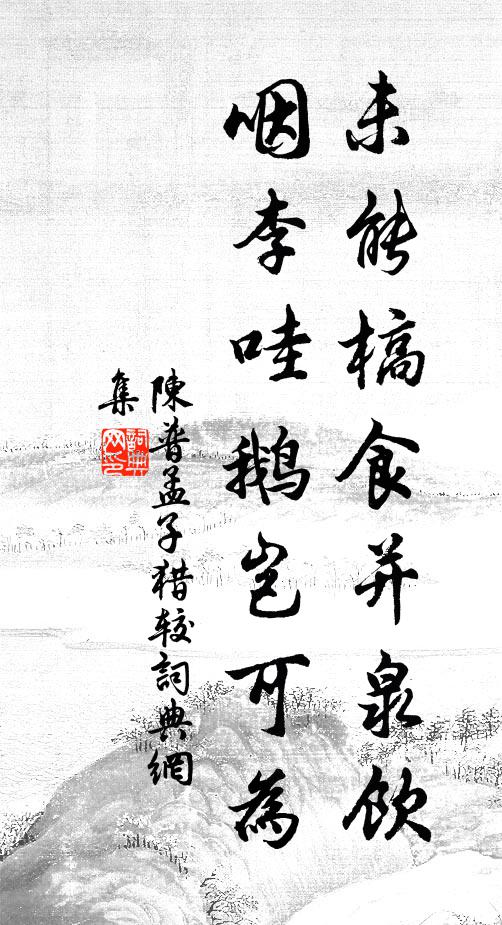 未能槁食并泉飲
咽李哇鵝豈可為
陳普孟子猎较詞典網
集
詞典网印